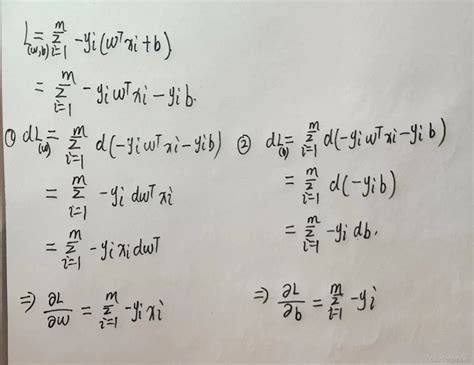 L(w,b) = Σ_{i=1}^{m} -yi(wᵀxi+b)
= Σ_{i=1}^{m} -yiwᵀxi-yib.
① dL(w) = Σ_{i=1}^{m} d(-yiwᵀxi-yib)
= Σ_{i=1}^{m} -yi dwᵀxi
= Σ_{i=1}^{m} -yixidwᵀ
⇒ ∂L/∂w = Σ_{i=1}^{m} -yixi
② dL(b) = Σ_{i=1}^{m} d(-yiwᵀxi-yib)
= Σ_{i=1}^{m} d(-yib)
= Σ_{i=1}^{m} -yi db.
⇒ ∂L/∂b = Σ_{i=1}^{m} -yi